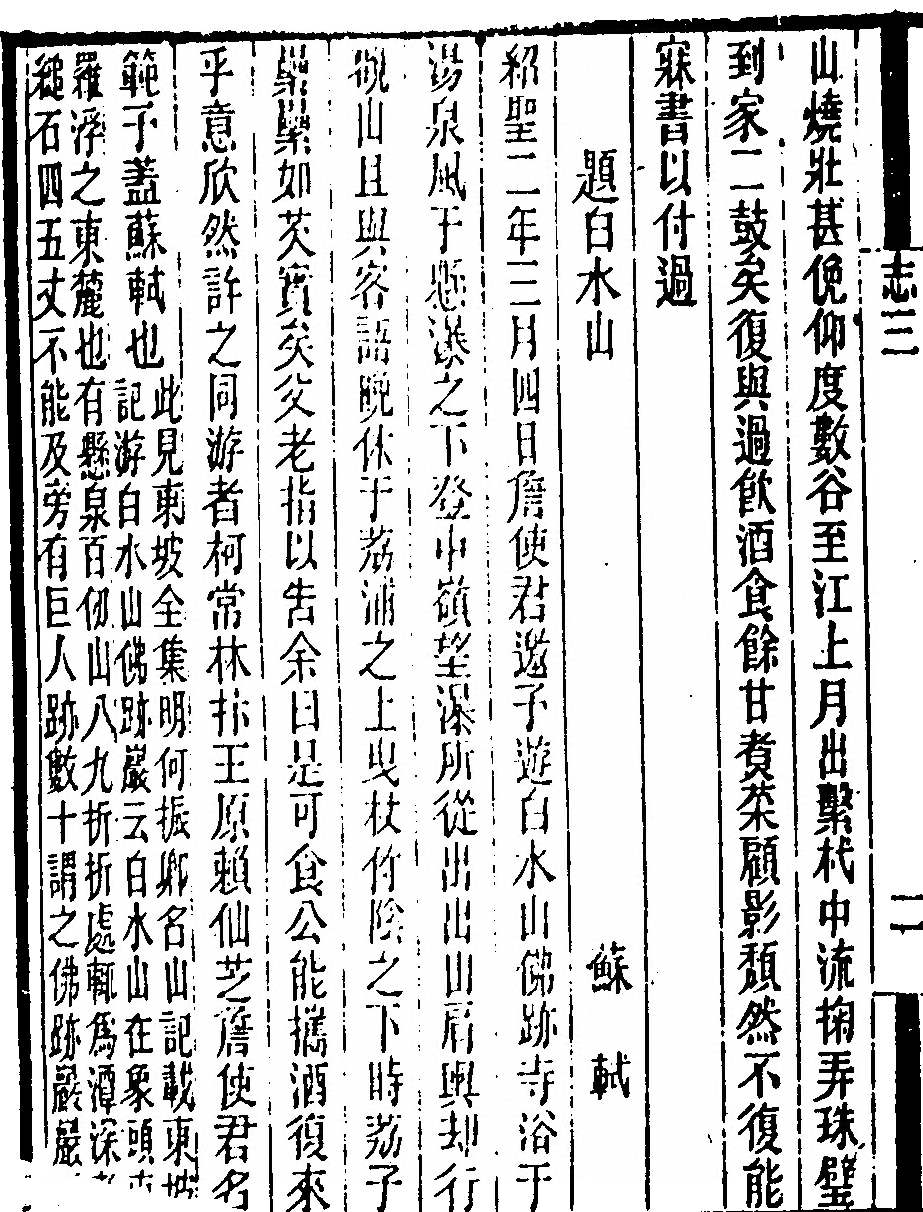 志三
二
山燒壯甚俛仰度數谷至江上月出擊栰中流掬弄珠璧
到家二鼓矣復與過飲酒食餘甘煮菜顧影頹然不復能
寐書以付過
題白水山
蘇軾
紹聖二年三月四日詹使君邀予遊白水山佛跡寺浴于
湯泉風于懸瀑之下登中嶺望瀑所從出出山肩輿却行
觀山且與客語晚休于荔浦之上曳杖竹陰之下時荔子
纍纍如芡實矣父老指以告余曰是可食公能攜酒復來
乎意欣然許之同游者柯常林抃王原賴仙芝詹使君名
範予蓋蘇軾也
此見東坡全集明何振卿名山記載東坡
記游白水山佛跡巖云白水山在象頭
羅浮之東麓也有懸泉百仞山八九折折處輒爲潭深
縋石四五丈不能及旁有巨人跡數十謂之佛跡巖巖